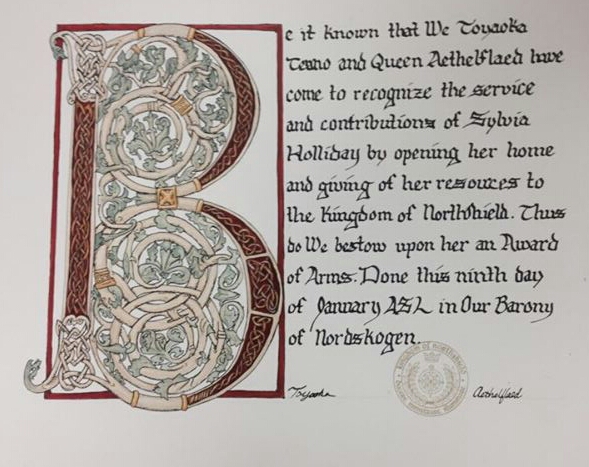 Be it known that We Toyaoka
Tenno and Queen Aethelflaed have
come to recognize the service
and contributions of Sylvia
Holliday by opening her home
and giving of her resources to
the Kingdom of Northshield. Thus
do We bestow upon her an Award
of Arms. Done this ninth day
of January ASL in Our Barony
of Nordskogen.
Toyaoka
Aethelflaed